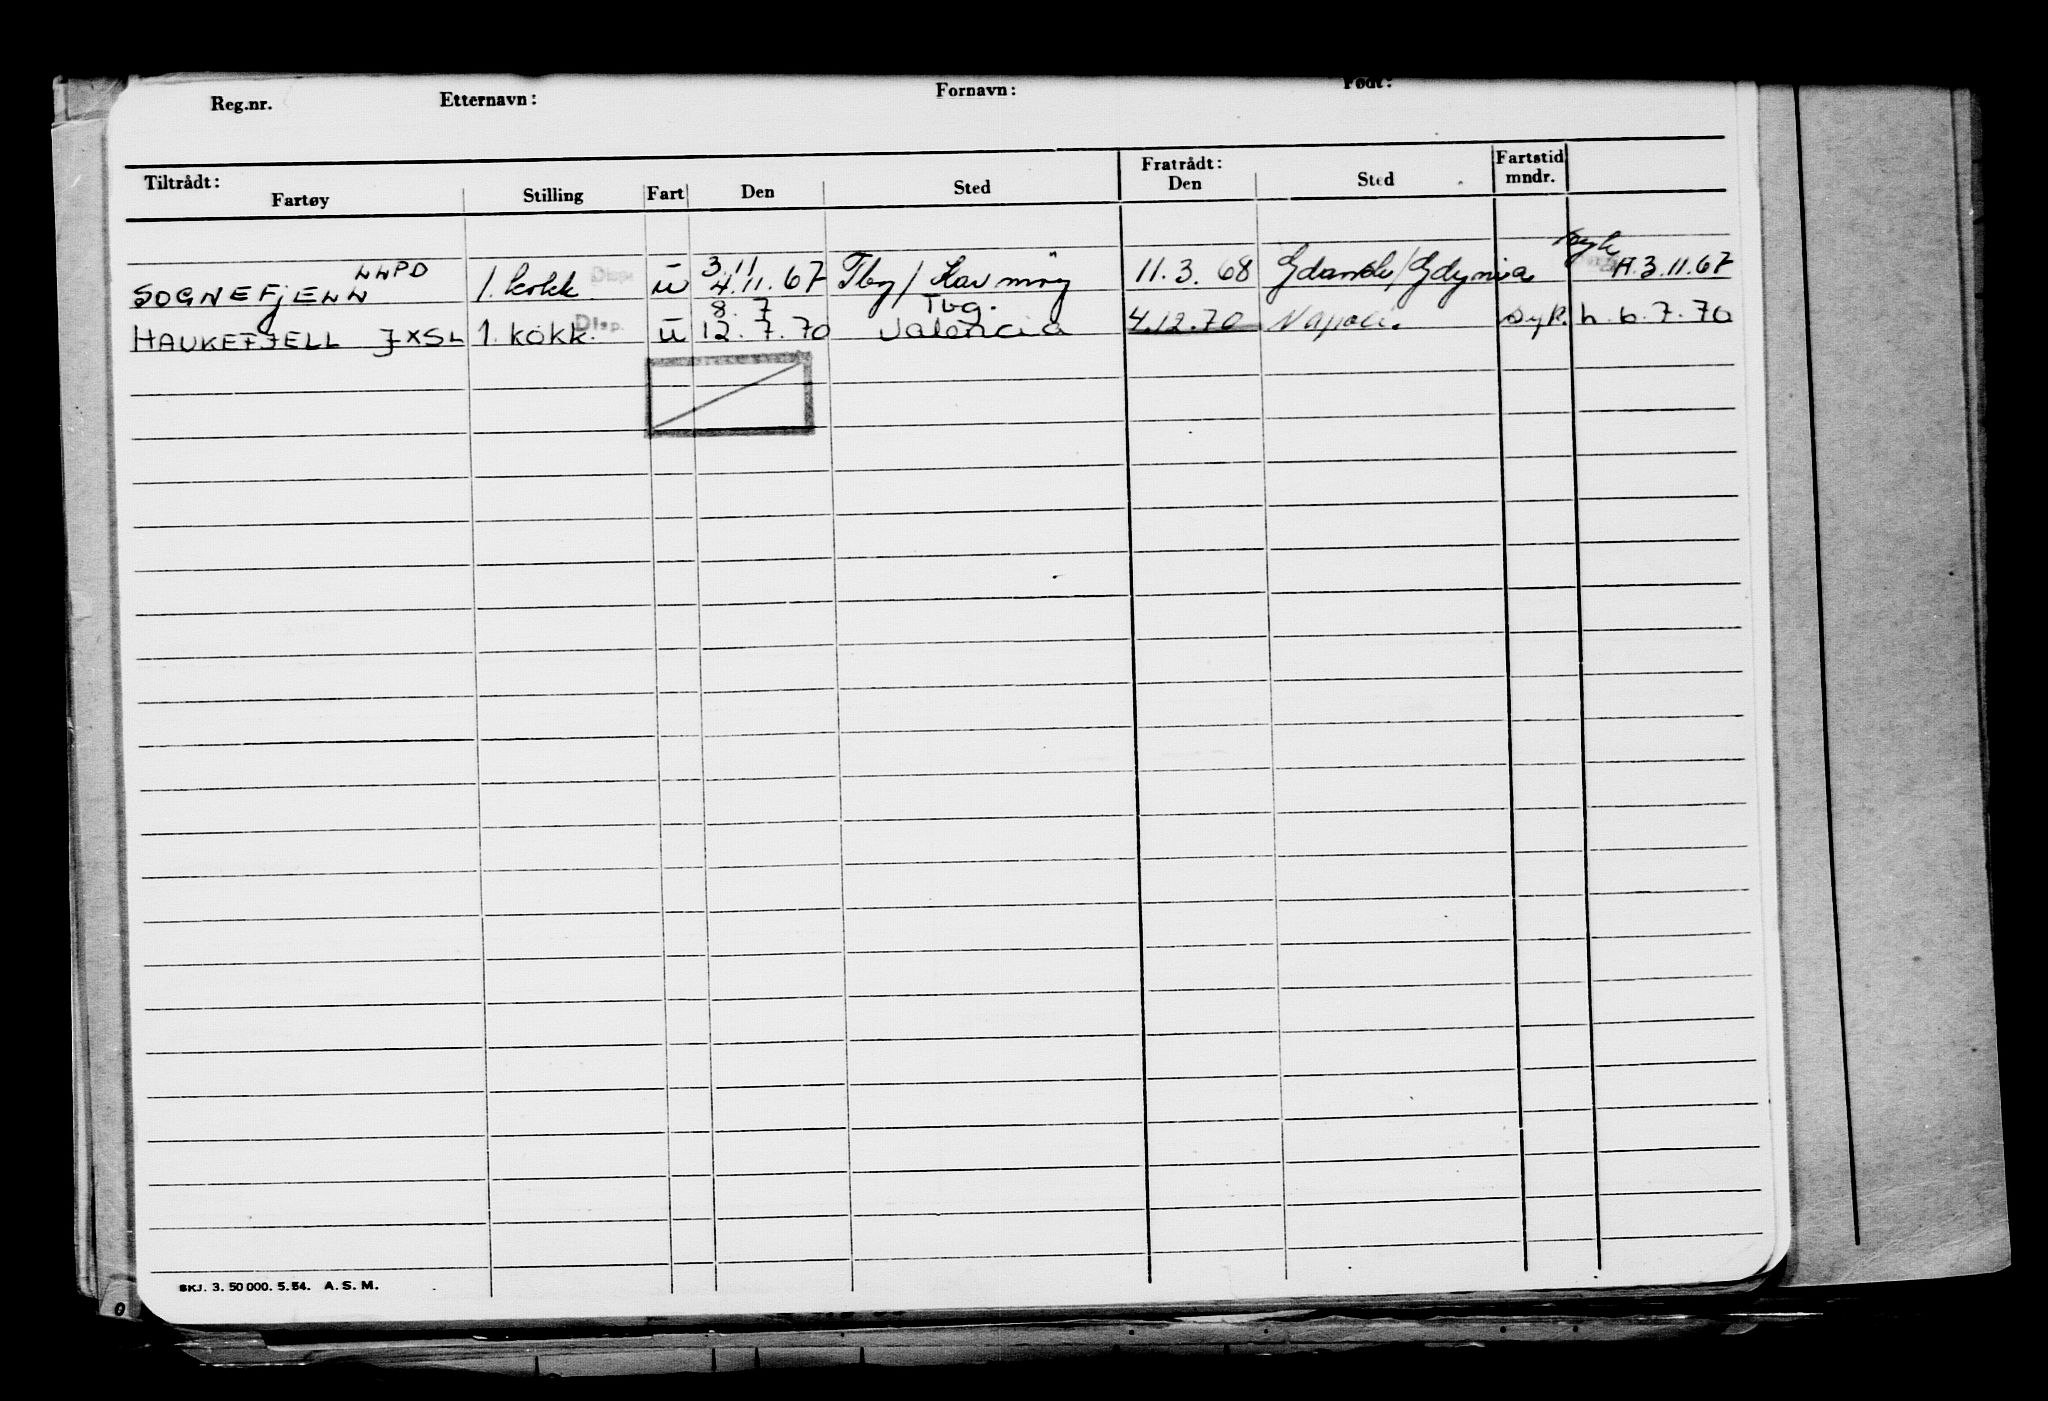 Reg.nr. Etternavn: Fornavn: Født:
Tiltrådt: Fratrådt: Fartstid
Fartøy Stilling Fart Den Sted Den Sted mndr.
LLPD 3.11
SOGNEFJELL 1. kokk Disp. u 4.11.67 Tbg/ 11.3.68 Gdansk/Gdynia H. 3.11.67
8. 7 Tbg.
HAUKEFJELL JXSL 1. kokk. Disp. u 12. 7. 70 Valencia 4.12.70 Napoli. Syk. h. 6. 7. 70
SKJ. 3. 50 000. 5. 54. A. S. M.
0